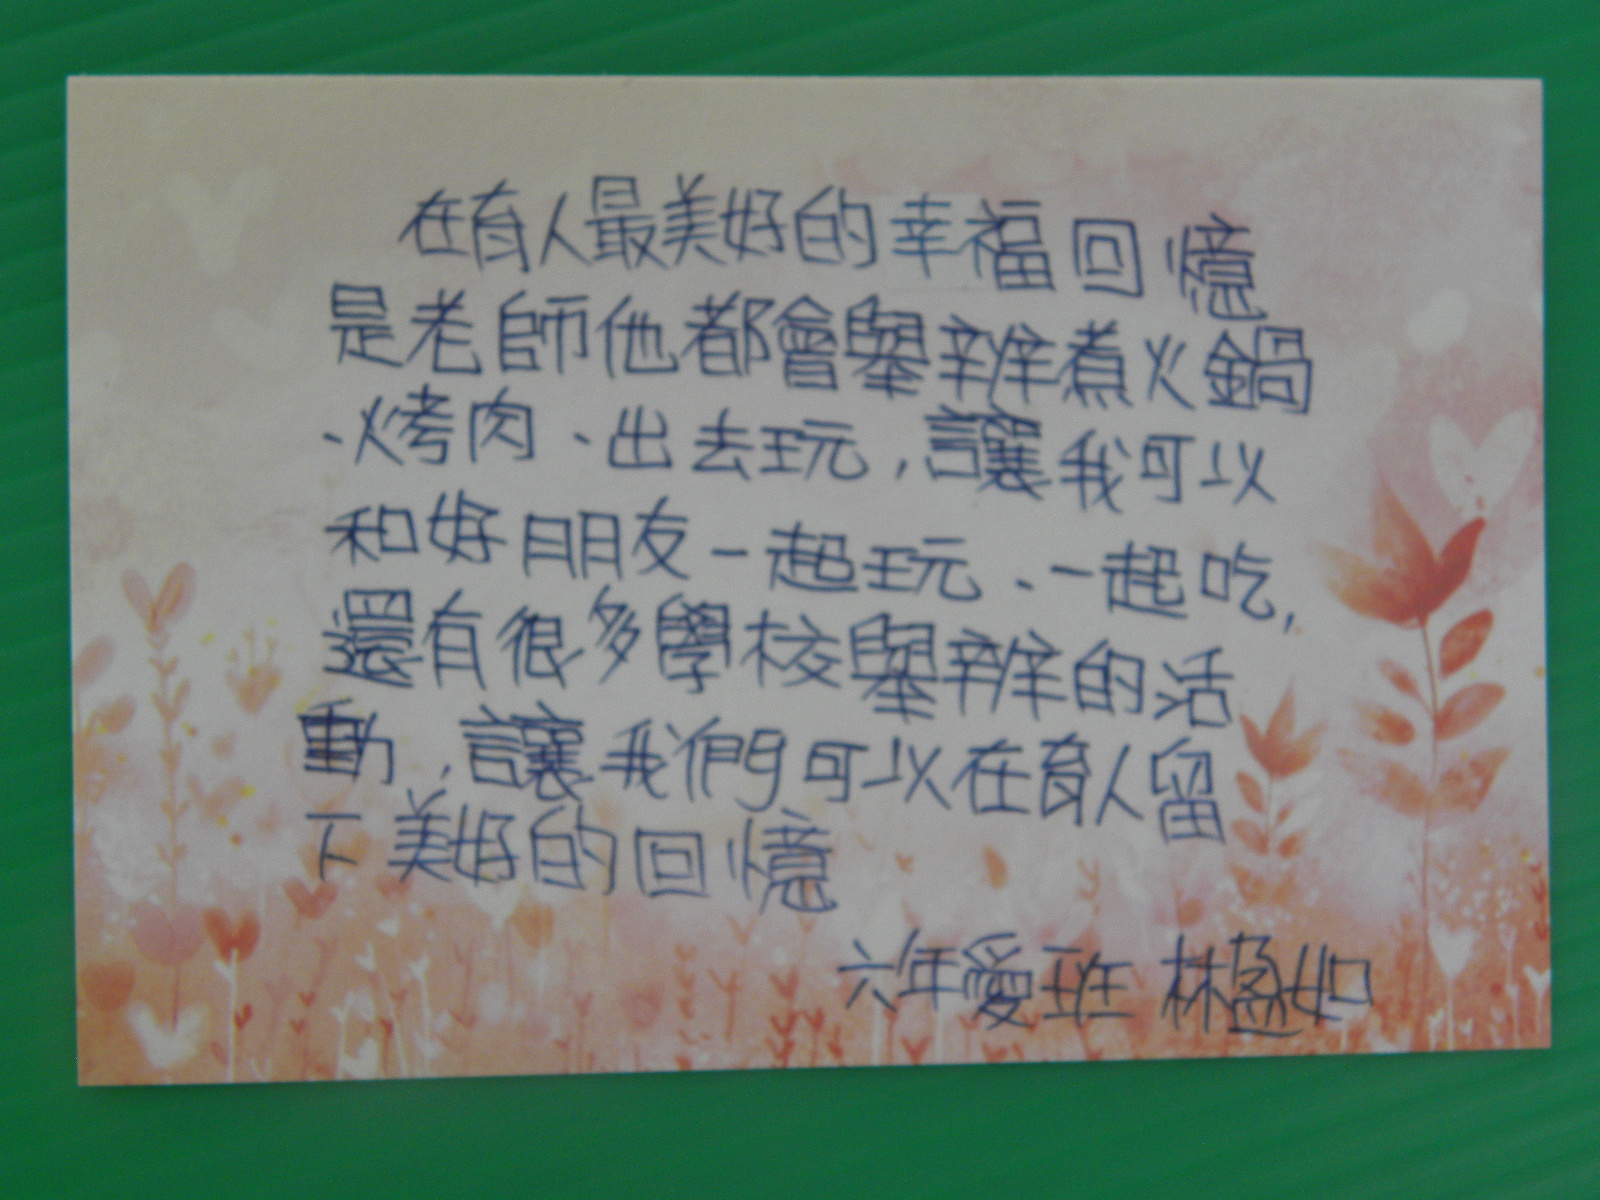 在育人最美好的幸福回憶
是老師他都會舉辦煮火鍋
、烤肉、出去玩,讓我可以
和好朋友一起玩、一起吃,
還有很多學校舉辦的活
動,讓我們可以在育人留
下美好的回憶
六年愛班 林盈如